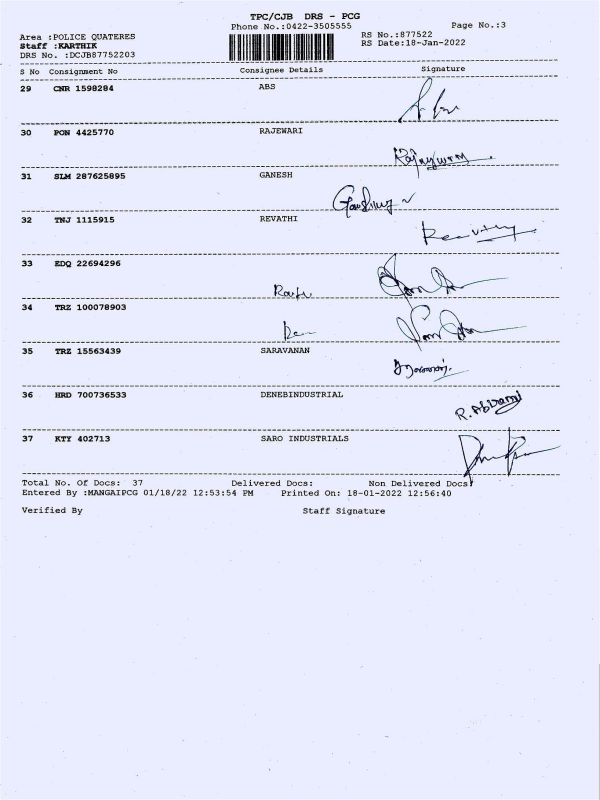 TPC/CJB DRS - PCG
Phone No.:0422-3505555 Page No.:3
Area :POLICE QUATERES RS No.:877522
Staff :KARTHIK RS Date:18-Jan-2022
DRS No. :DCJB87752203
S No Consignment No Consignee Details Signature
29 CNR 1598284 ABS
30 PON 4425770 RAJEWARI
31 SLM 287625895 GANESH
32 TNJ 1115915 REVATHI
Revathy
33 EDQ 22694296
34 TRZ 100078903
35 TRZ 15563439 SARAVANAN
36 HRD 700736533 DENEBINDUSTRIAL
R. Abirami
37 KTY 402713 SARO INDUSTRIALS
Total No. Of Docs: 37 Delivered Docs: Non Delivered Docs:
Entered By :MANGAIPCG 01/18/22 12:53:54 PM Printed On: 18-01-2022 12:56:40
Verified By Staff Signature